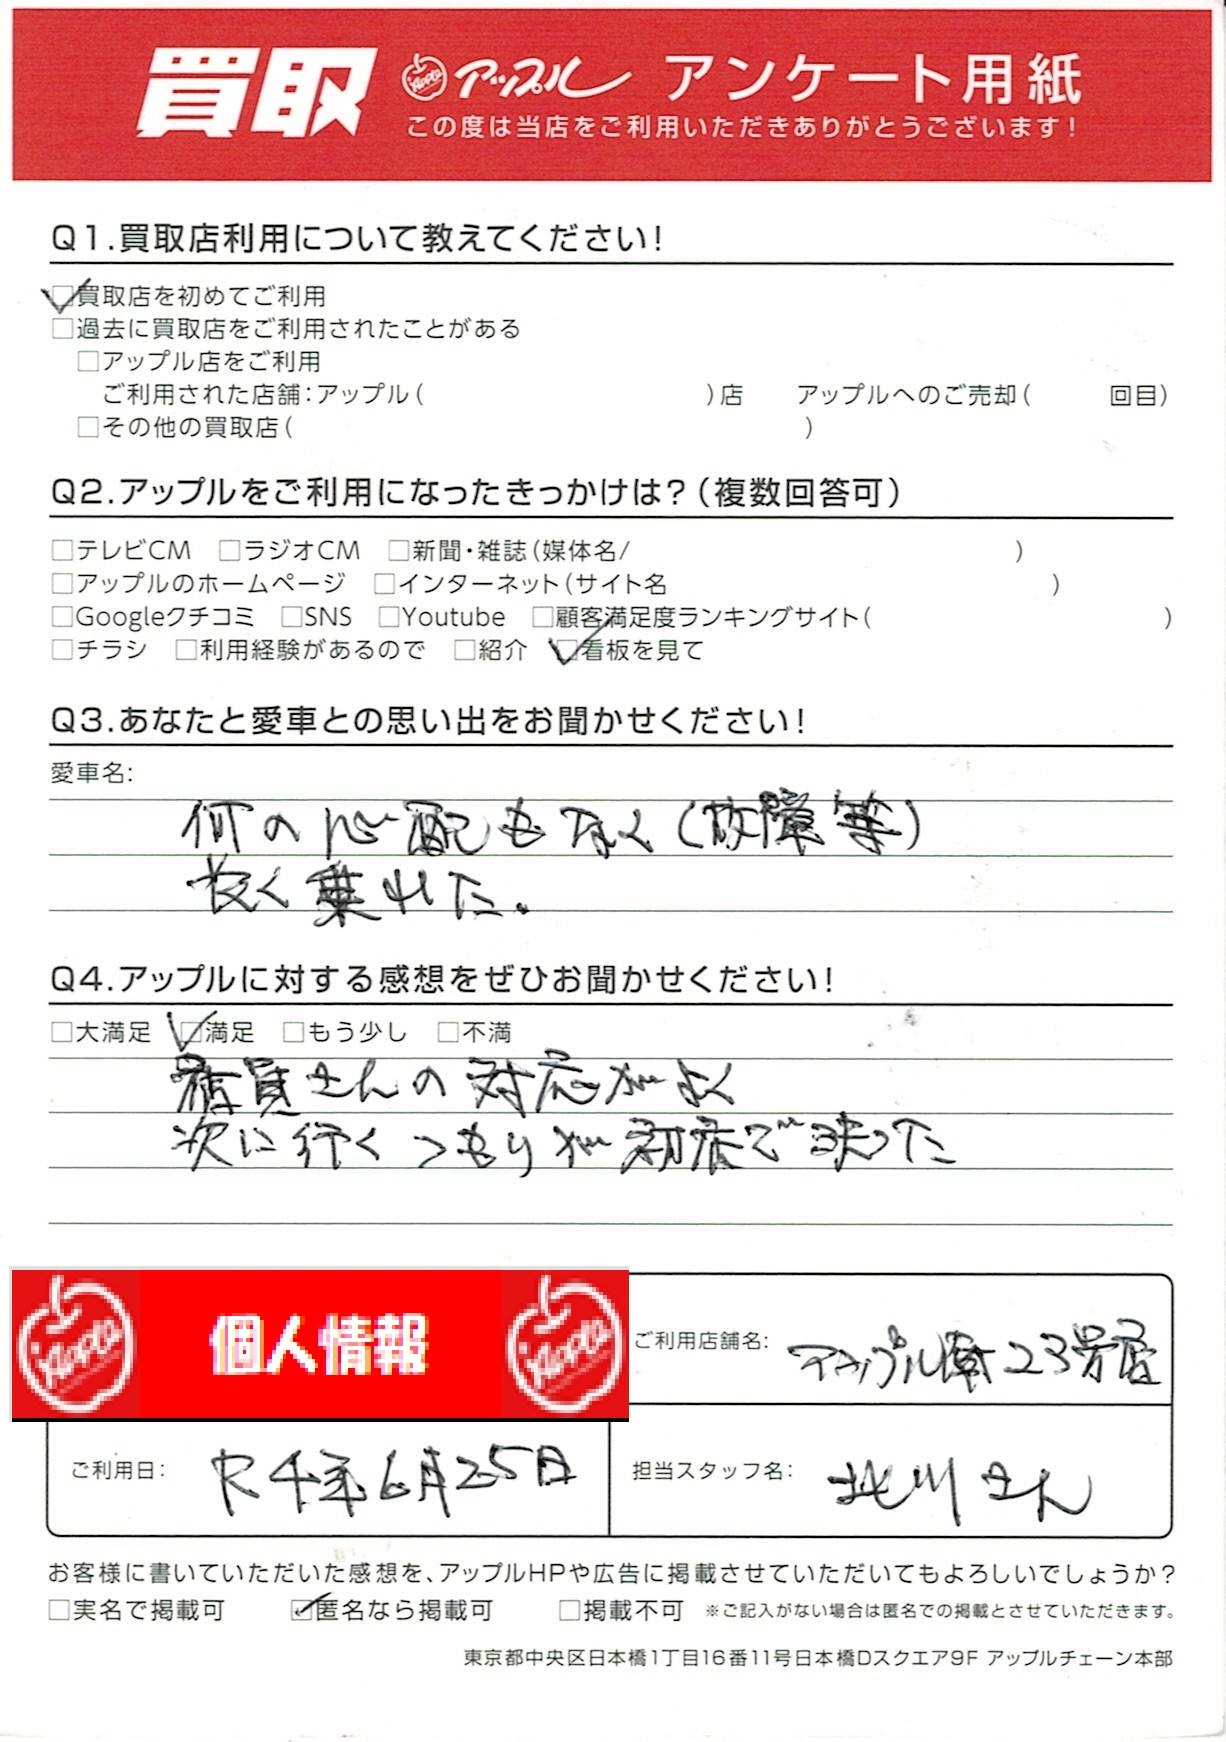 買取 Apple アップル アンケート用紙
この度は当店をご利用いただきありがとうございます！
Q1.買取店利用について教えてください！
☑買取店を初めてご利用
□過去に買取店をご利用されたことがある
□アップル店をご利用
ご利用された店舗：アップル（ ）店 アップルへのご売却（ 回目）
□その他の買取店（ ）
Q2.アップルをご利用になったきっかけは？（複数回答可）
□テレビCM □ラジオCM □新聞・雑誌（媒体名/ ）
□アップルのホームページ □インターネット（サイト名 ）
□Googleクチコミ □SNS □Youtube □顧客満足度ランキングサイト（ ）
□チラシ □利用経験があるので □紹介 ☑看板を見て
Q3.あなたと愛車との思い出をお聞かせください！
愛車名:
何の心配もなく（故障等）
長く乗れた。
Q4.アップルに対する感想をぜひお聞かせください！
□大満足 ☑満足 □もう少し □不満
店員さんの対応がよく
次に行くつもりが初店で決った
Apple 個人情報 Apple
ご利用店舗名: アップル 23号店
ご利用日: R4年6月25日
担当スタッフ名: 北川さん
お客様に書いていただいた感想を、アップルHPや広告に掲載させていただいてもよろしいでしょうか？
□実名で掲載可 ☑匿名なら掲載可 □掲載不可 ※ご記入がない場合は匿名での掲載とさせていただきます。
東京都中央区日本橋1丁目16番11号日本橋Dスクエア9F アップルチェーン本部